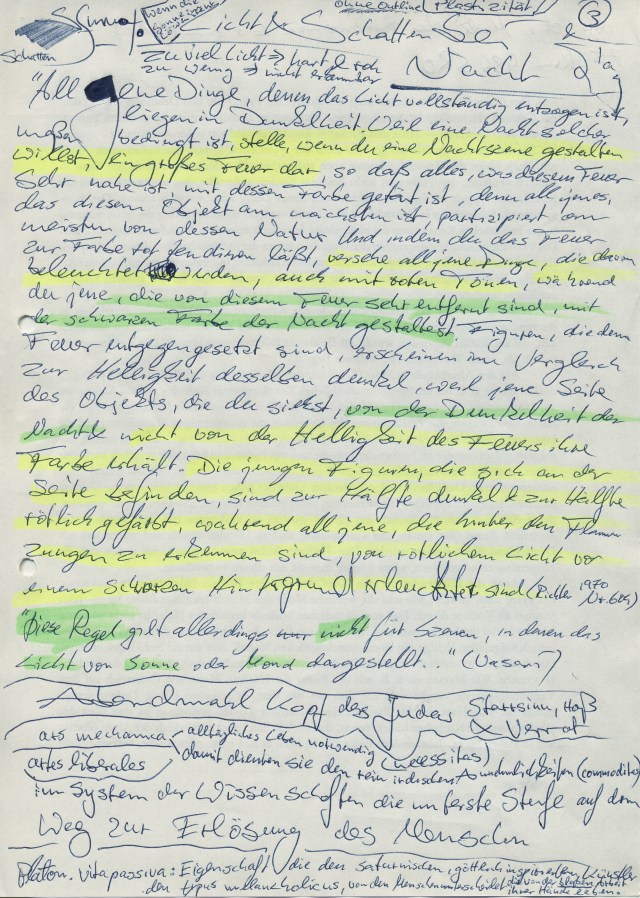 ohne Outline (Plastizität)
③
wenn die Sonne
Schatten
Licht & Schatten bei
zu viel Licht ⇒ hart & roh
zu wenig ⇒ nicht erkennbar
Nacht & Tag
"All jene Dinge, denen das Licht vollständig entzogen ist,
liegen in Dunkelheit. Weil eine Nacht solcher
maßen bedingt ist, stelle, wenn du eine Nachtszene gestalten
willst, ein großes Feuer dar, so daß alles, was diesem Feuer
sehr nahe ist, mit dessen Farbe getönt ist, denn all jenes,
das diesem Objekt am nächsten ist, partizipiert am
meisten von dessen Natur. Und indem du das Feuer
zur Farbe rot tendieren läßt, versehe all jene Dinge, die davon
beleuchtet werden, auch mit roten Tönen, während
du jene, die von diesem Feuer sehr entfernt sind, mit
der schwarzen Farbe der Nacht gestaltest. Figuren, die dem
Feuer entgegengesetzt sind, erscheinen im Vergleich
zur Helligkeit desselben dunkel, weil jene Seite
des Objekts, die du siehst, von der Dunkelheit der
Nacht & nicht von der Helligkeit des Feuers ihre
Farbe erhält. Diejenigen Figuren, die sich an der
Seite befinden, sind zur Hälfte dunkel & zur Hälfte
rötlich gefärbt, während all jene, die hinter den Flammen
zungen zu erkennen sind, von rötlichem Licht vor
einem schwarzen Hintergrund erleuchtet sind (Richter 1970
Nr. 604)
"Diese Regel gilt allerdings nicht für Szenen, in denen das
Licht von Sonne oder Mond dargestellt.." (Vasari)
Abendmahl Kopf des Judas Starrsinn, Haß
& Verrat
ars mechanica alltägliches Leben notwendig (necessitas)
artes liberales damit dienten sie den rein irdischen Annehmlichkeiten (commodita)
im System der Wissenschaften die unterste Stufe auf dem
Weg zur Erlösung des Menschen
Platon. Vita passiva: Eigenschaft, die den saturnischen, göttlich inspirierten Künstler
den typus melancholicus, von den Menschen unterscheidet die von der bloßen Arbeit
ihrer Hände leben.